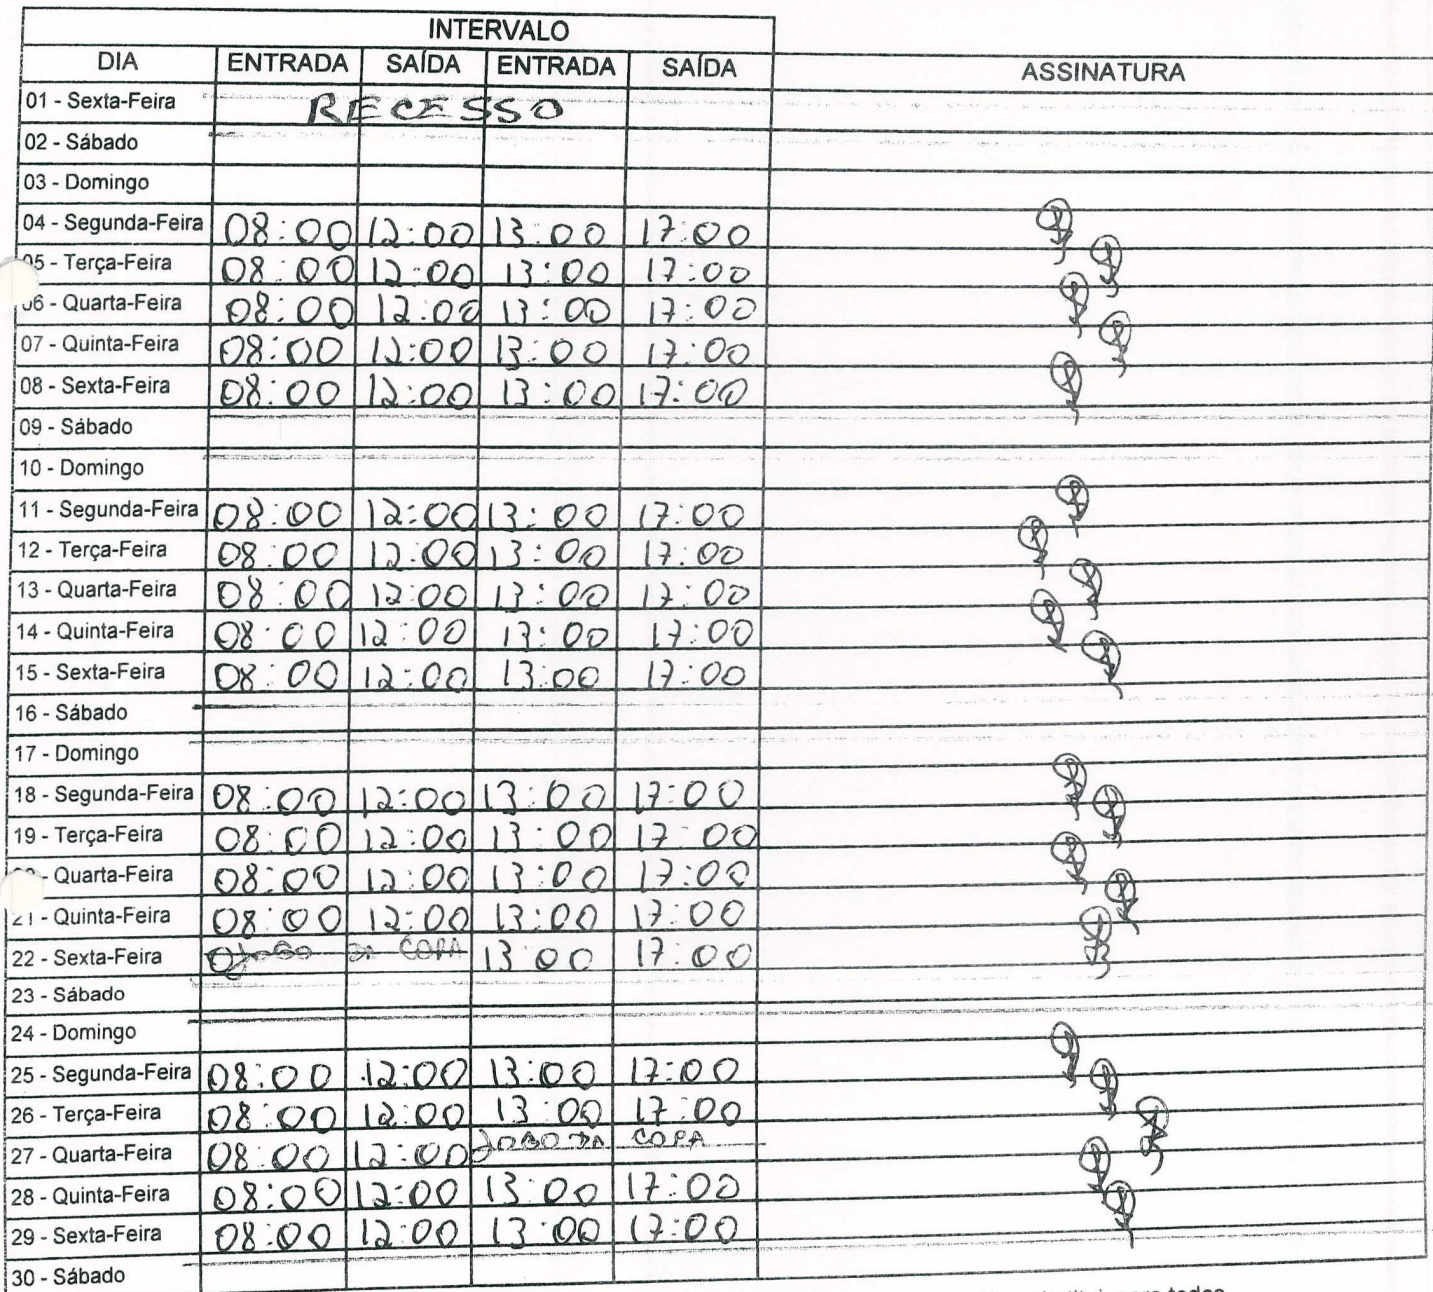 INTERVALO
DIA ENTRADA SAÍDA ENTRADA SAÍDA ASSINATURA
01 - Sexta-Feira RECESSO
02 - Sábado
03 - Domingo
04 - Segunda-Feira 08:00 12:00 13:00 17:00
05 - Terça-Feira 08:00 12:00 13:00 17:00
06 - Quarta-Feira 08:00 12:00 13:00 17:00
07 - Quinta-Feira 08:00 12:00 13:00 17:00
08 - Sexta-Feira 08:00 12:00 13:00 17:00
09 - Sábado
10 - Domingo
11 - Segunda-Feira 08:00 12:00 13:00 17:00
12 - Terça-Feira 08:00 12:00 13:00 17:00
13 - Quarta-Feira 08:00 12:00 13:00 17:00
14 - Quinta-Feira 08:00 12:00 13:00 17:00
15 - Sexta-Feira 08:00 12:00 13:00 17:00
16 - Sábado
17 - Domingo
18 - Segunda-Feira 08:00 12:00 13:00 17:00
19 - Terça-Feira 08:00 12:00 13:00 17:00
- Quarta-Feira 08:00 12:00 13:00 17:00
21 - Quinta-Feira 08:00 12:00 13:00 17:00
22 - Sexta-Feira JOGO DA COPA 13:00 17:00
23 - Sábado
24 - Domingo
25 - Segunda-Feira 08:00 12:00 13:00 17:00
26 - Terça-Feira 08:00 12:00 13:00 17:00
27 - Quarta-Feira 08:00 12:00 JOGO DA COPA
28 - Quinta-Feira 08:00 12:00 13:00 17:00
29 - Sexta-Feira 08:00 12:00 13:00 17:00
30 - Sábado